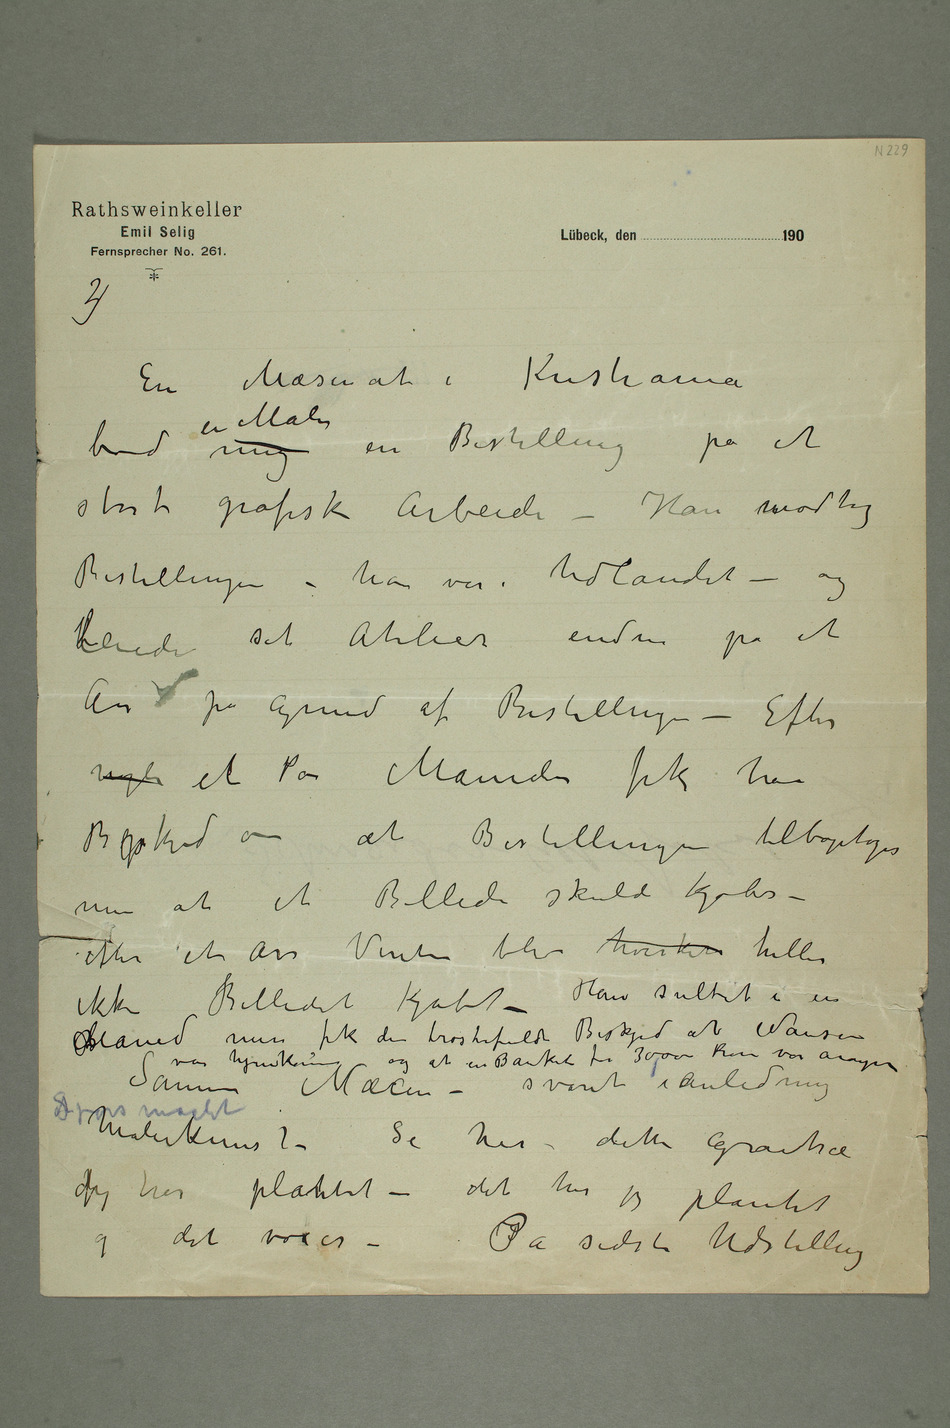 N 229
Rathsweinkeller
Emil Selig
Fernsprecher No. 261.
Lübeck, den 190
En Mæsenat i Kristiania
en Maler
bød mig en Bestilling på et
stort grafisk Arbeide – Han modtog
Bestillingen – han var i Udlandet – og
leiede sit Atelier endnu på et
År på Grund af Bestillingen – Efter
nogle et Par Maaneder fik han
Beskjed om at Bestillingen tilbagetoges
men at et Billede skulde kjøbes –
efter et Års Venten blev hverken heller
ikke Billedet kjøbt – Han sultet i en
Maaned men fik den trøstefulde Beskjed at Nansen
var hjemkommen og at en Banket for 30,000 Kron var arrangeret
Samme Mæcen – svaret i anledning
Spørsmaalet
Malerkunst – Se her – dette Grantræ
jeg har plantet – det har jeg plantet
og det voxer – På sidste Udstilling